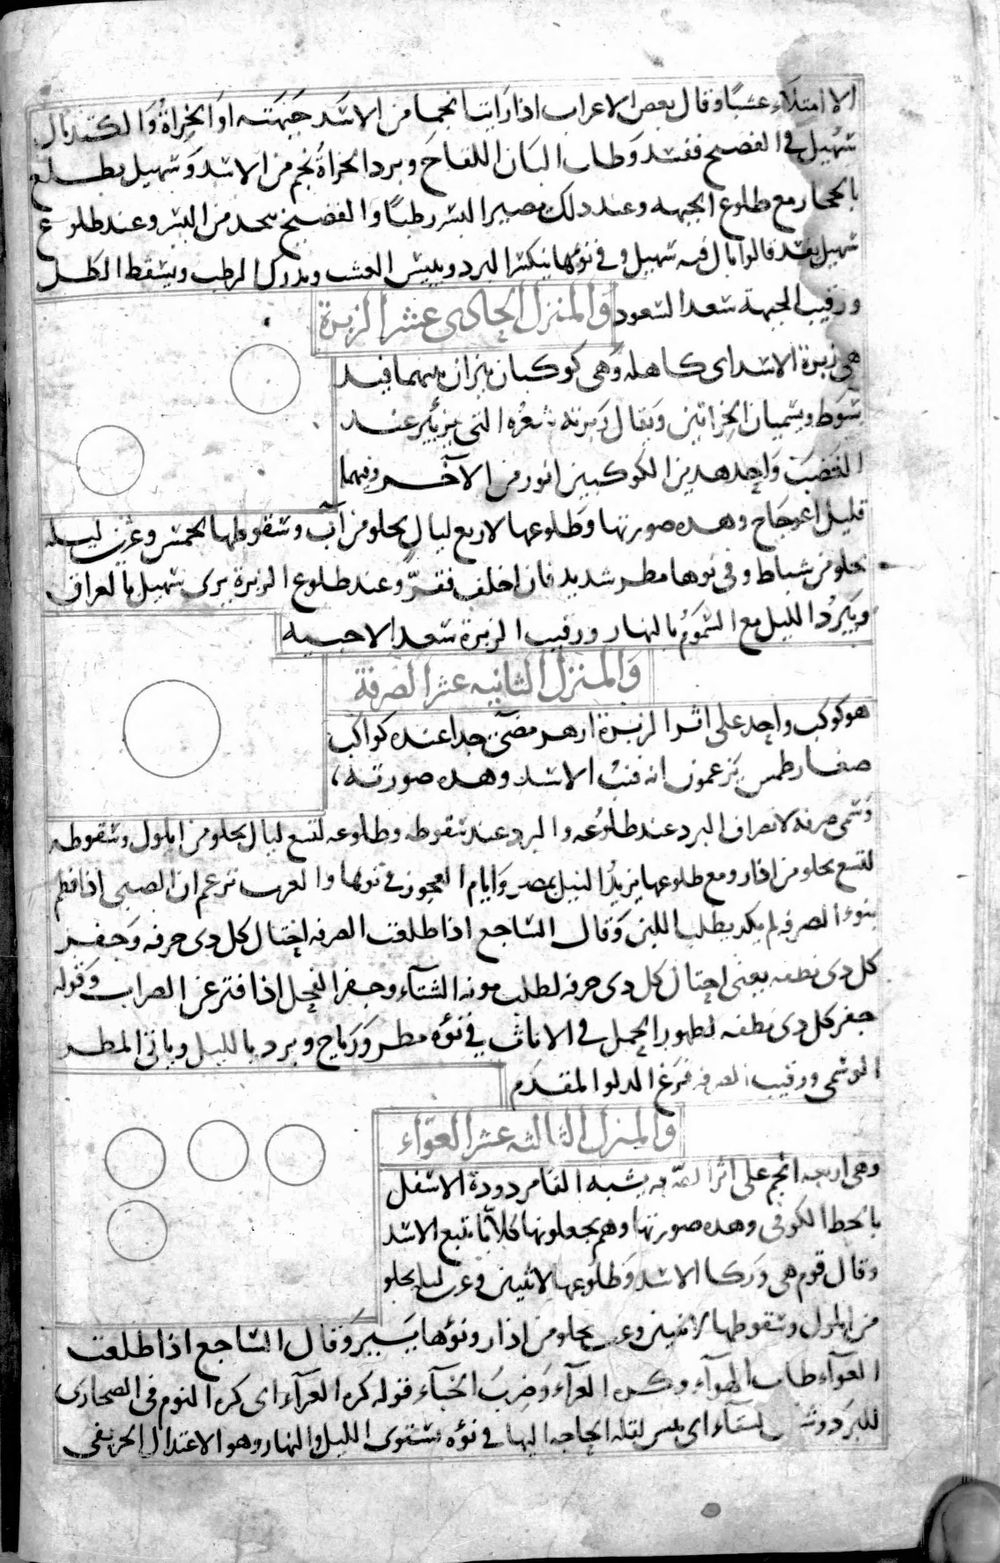 الا امتلاء عشبا وقال بعض الاعراب اذا رايت انجما من الاسد جبهته او الخراة والكتد بال
سهيل في الفضيخ ففسد وطاب البان اللقاح وبرد الخراة نجم من الاسد وسهيل يطلع
بالحجاز مع طلوع الجبهه وعند ذلك يصير البسر رطبا والفضيخ يتخذ من البسر وعند طلوع
سهيل يفسد فقالوا بال فيه سهيل وفي نوها ينكسر البرد ويبيس العشب ويدرك الرطب ويسقط الطل
ورقيب الجبهة سعد السعود والمنزل الحادي عشر الزبرة
هي زبرة الاسد اي كاهله وهي كوكبان نيران بينهما قيد
سوط ويسميان الخراتين ويقال زبرته شعره التي يزبئر عند
الغضب واحد هذين الكوكبين انور من الآخر وفيهما
قليل اعوجاج وهذه صورتها وطلوعها لاربع ليال يخلو من آب وسقوطها لخمس وعشرين ليله
يخلو من شباط وفي نوها مطر شديد فان اخلف فقر وعند طلوع الزبرة يرى سهيل بالعراق
ويبرد الليل مع السموم بالنهار ورقيب الزبرة سعد الاخبيه
والمنزل الثانيه عشر الصرفة
هو كوكب واحد على اثر الزبرة ازهر مضئ جدا عنده كواكب
صغار طمس يزعمون انه قنب الاسد وهذه صورته
وسمى صرفة لانصراف البرد عند طلوعه والبرد عند سقوطه وطلوعه لتسع ليال يخلو من ايلول وسقوطه
لتسع يخلو من اذار ومع طلوعها يزيد النيل بمصر وايام العجوز في نوها والعرب تزعم ان الصبي اذا فطم
بنوء الصرفه لم يكد يطلب اللبن وقال الساجع اذا طلعت الصرفه احتال كل ذي حرفه وجفر
كل ذي نطفه يعنى احتال كل ذي حرفه لطلب مونه الشتاء وجفر الفحل اذا فتر عن الضراب وقوله
جفر كل ذي نطفه لظهور الحمل في الاناث في نوه مطر ورياح وبرد بالليل وياتي المطر
الوسمى ورقيب الصرفه فرغ الدلو المقدم
والمنزل الثالثه عشر العواء
وهي اربعه انجم على اثر الصرفه يشبه القا مردودة الاسفل
بالخط الكوفي وهذه صورتها وهم يجعلونها كلابا تتبع الاسد
وقال قوم هي وركا الاسد وطلوعها لاثنين وعشرين ليله يخلو
من ايلول وسقوطها لاثنين وعشرين يخلو من اذار ونوها يسير وقال الساجع اذا طلعت
العواء طاب الهواء وكره العراء وضرب الخباء قوله كره العراء اي كره النوم في الصحاري
للبرد السقاء اي يبس لقلة الحاجه اليها في نوه يستوى الليل والنهار وهو الاعتدال الخريفي